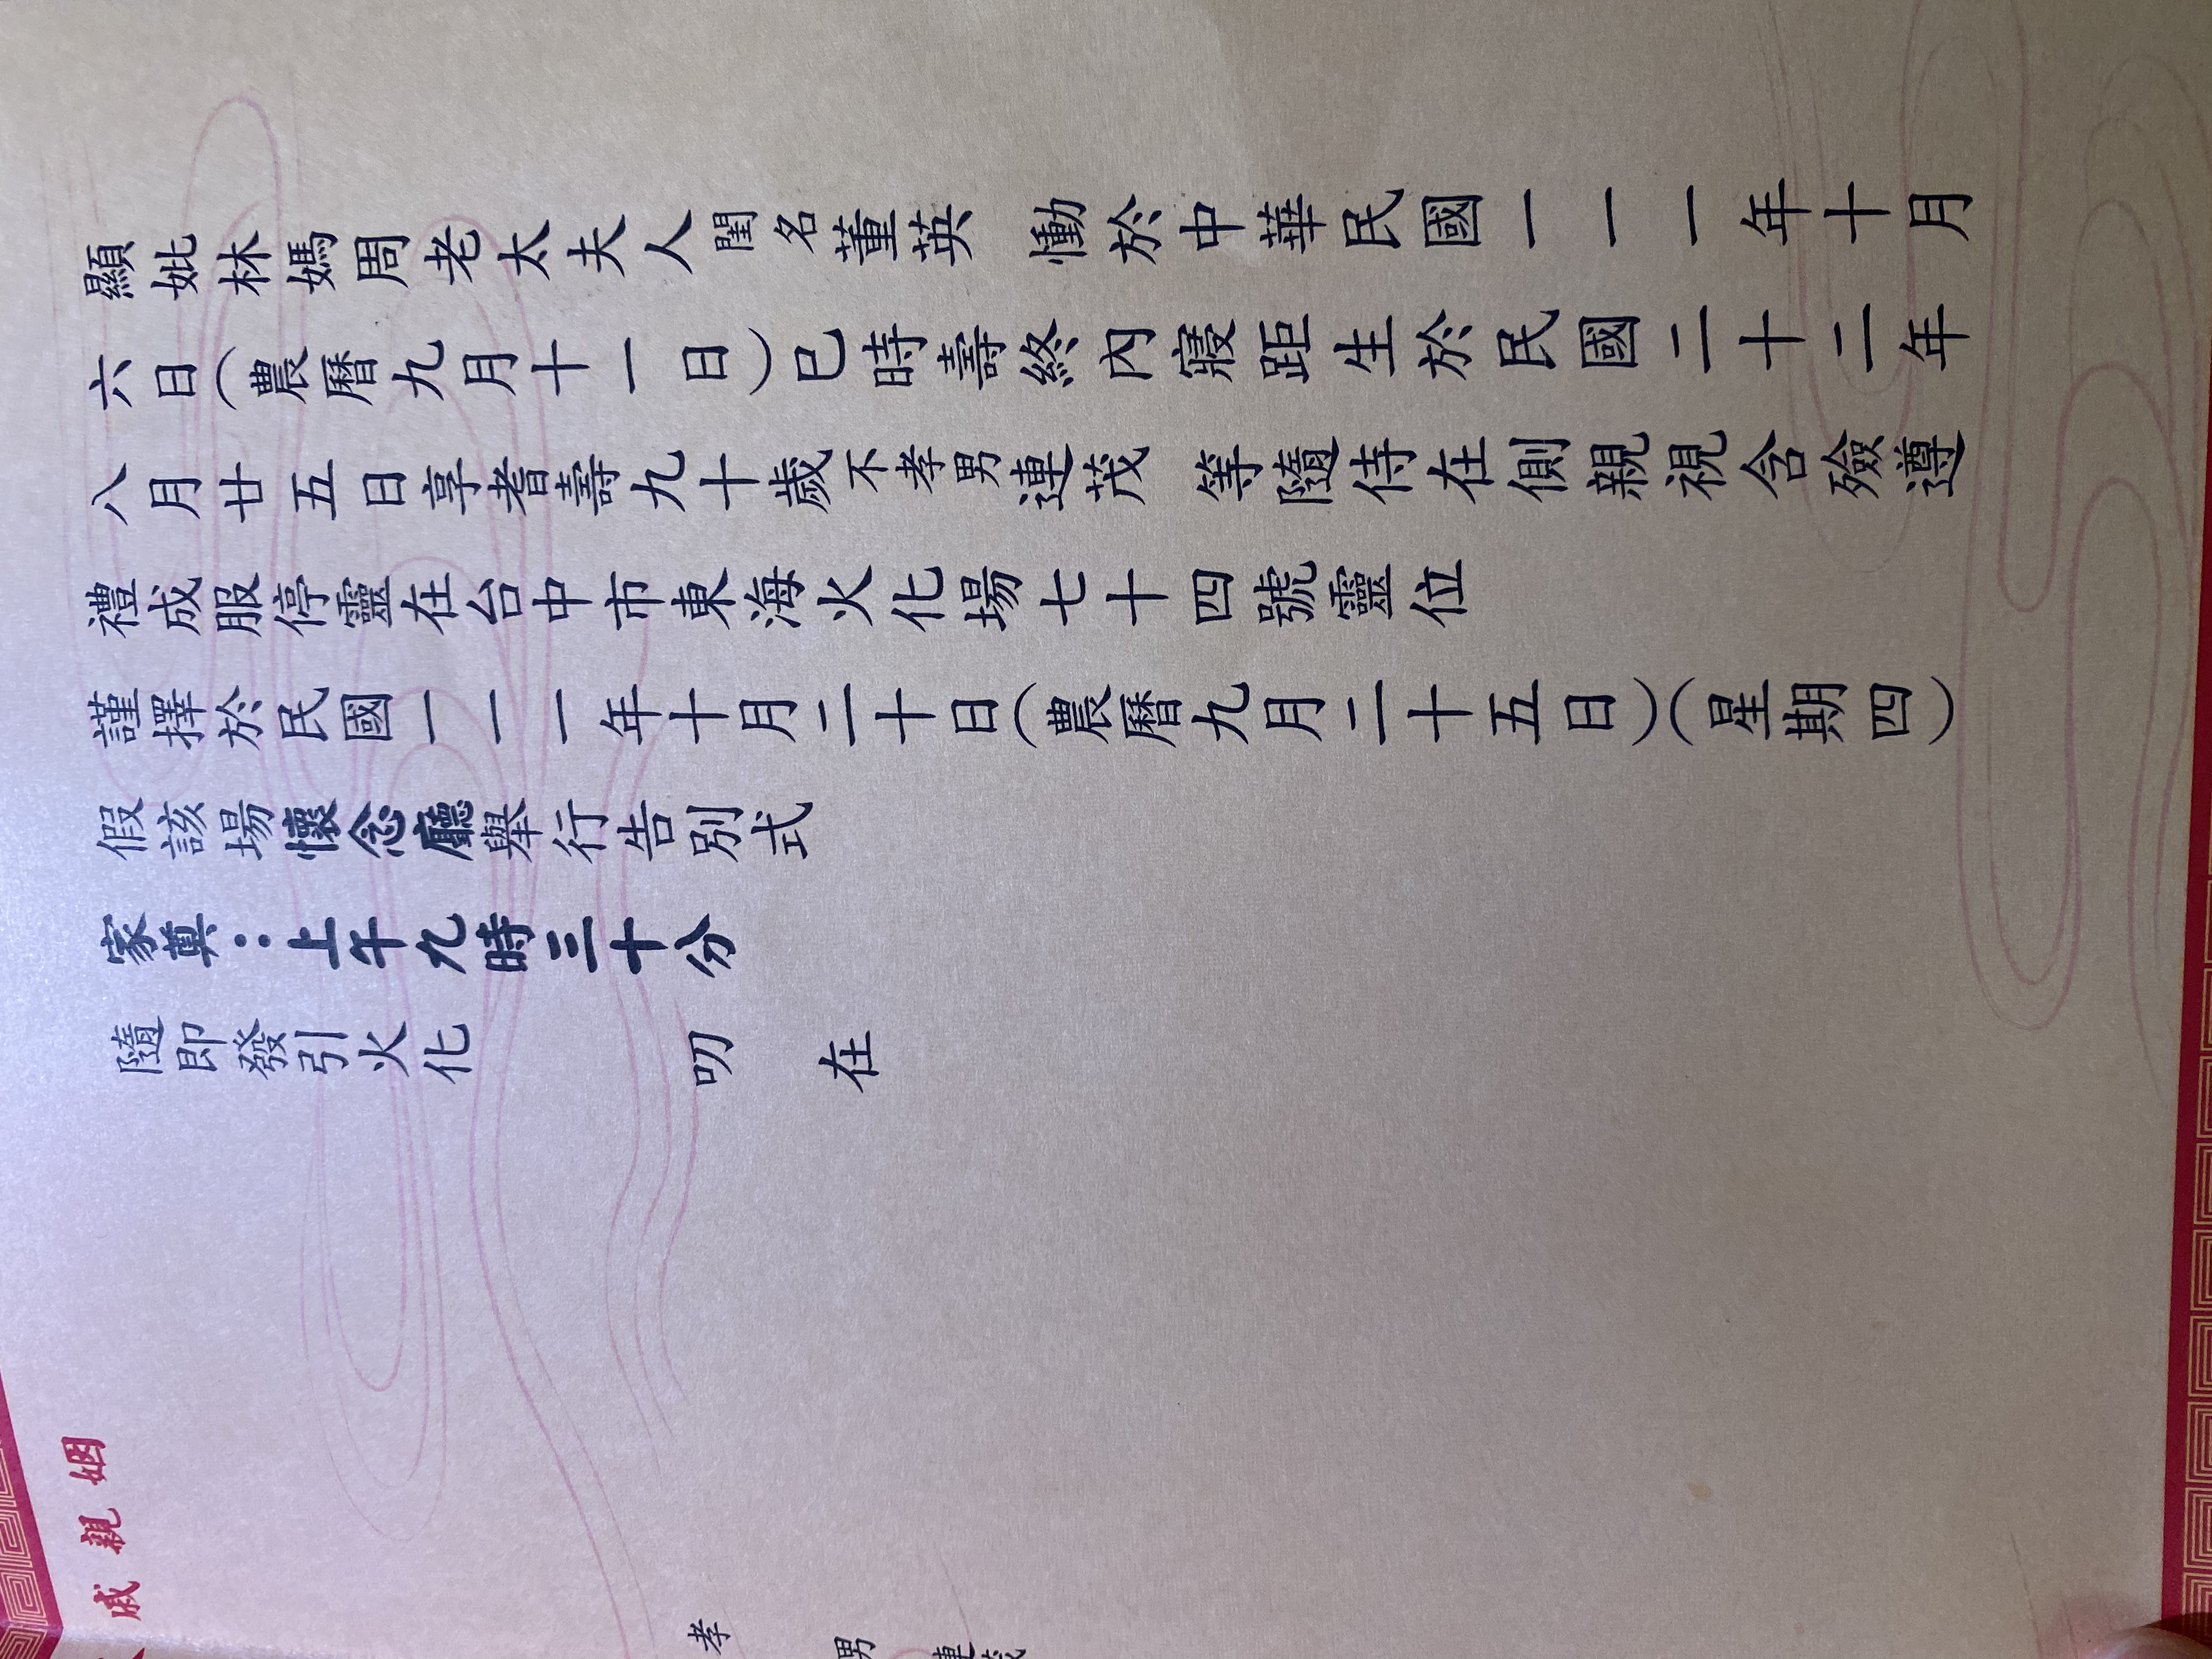 顯妣林媽周老太夫人閨名董英 慟於中華民國一一一年十月
六日(農曆九月十一日)巳時壽終內寢距生於民國二十二年
八月廿五日享耆壽九十歲不孝男連茂 等隨侍在側親視含殮遵
禮成服停靈在台中市東海火化場七十四號靈位
謹擇於民國一一一年十月二十日(農曆九月二十五日)(星期四)
假該場懷念廳舉行告別式
家奠：上午九時三十分
隨即發引火化 叨 在
姻親戚
孝
男
連茂